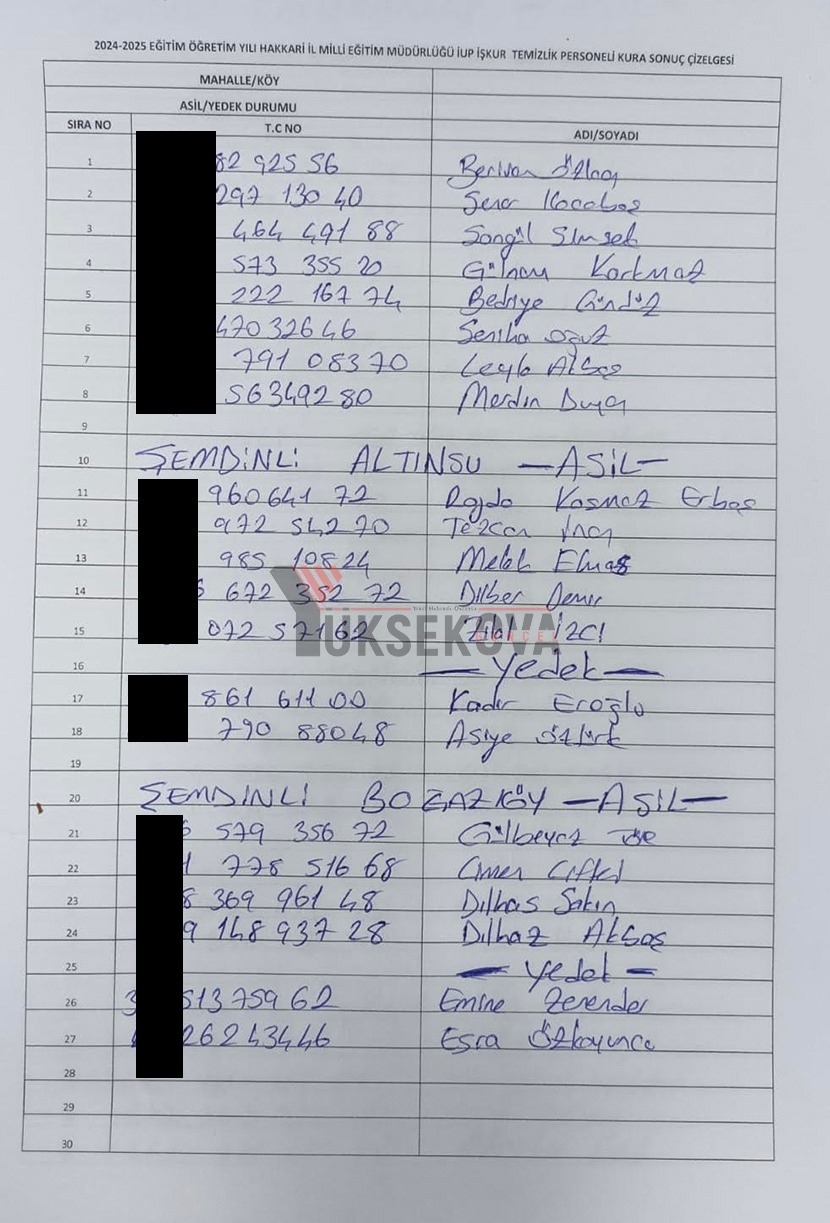 2024-2025 EĞİTİM ÖĞRETİM YILI HAKKARİ İL MİLLİ EĞİTİM MÜDÜRLÜĞÜ İUP İŞKUR TEMİZLİK PERSONELİ KURA SONUÇ ÇİZELGESİ
MAHALLE/KÖY
ASİL/YEDEK DURUMU
SIRA NO T.C NO ADI/SOYADI
1 82 925 56 Berivan
2 297 130 40
3 464 491 88 Songül Şimşek
4 573 355 20 Korkmaz
5 222 167 74 Bedriye Gündüz
6 47032646 Seniha Oğuz
7 791 08370 Leyla
8 56349280
9
10 ŞEMDİNLİ ALTINSU — ASİL —
11 960641 72 Rojda Kasmaz Erbaş
12 972 542 70 Tezcan İnan
13 985 10824 Melek Elmas
14 672 352 72 Dilber Demir
15 072 57162 Zilal İZCİ
YÜKSEKOVA
16 — Yedek —
17 861 611 00 Kadir Eroğlu
18 790 88048 Asiye Öztürk
19
20 ŞEMDİNLİ BOĞAZKÖY — ASİL —
21 579 356 72 Gülbeyaz
22 778 516 68 Çiftçi
23 8 369 961 48 Dilbas Sakin
24 9 148 937 28 Dilhaz Akbaş
25 — Yedek —
26 3 513759 62 Emine
27 26243446 Esra
28
29
30